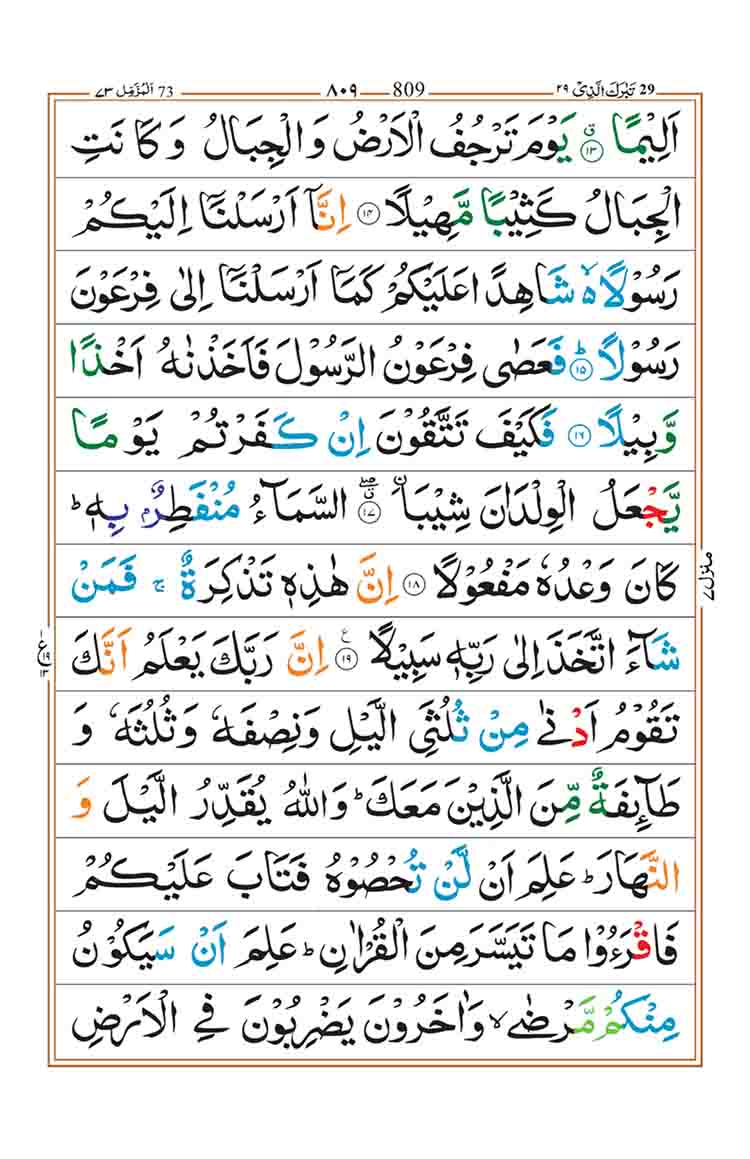 29 تَبٰرَكَ الَّذِىْ ٢٩ 809 ٨٠٩ 73 اَلْمُزَّمِّل ٧٣
اَلِيْمًا ۙ۝١٣ يَوْمَ تَرْجُفُ الْاَرْضُ وَالْجِبَالُ وَكَانَتِ
الْجِبَالُ كَثِيْبًا مَّهِيْلًا ۝١٤ اِنَّاۤ اَرْسَلْنَاۤ اِلَيْكُمْ
رَسُوْلًا ۙ۬ شَاهِدًا عَلَيْكُمْ كَمَاۤ اَرْسَلْنَاۤ اِلٰى فِرْعَوْنَ
رَسُوْلًا ؕ۝١٥ فَعَصٰى فِرْعَوْنُ الرَّسُوْلَ فَاَخَذْنٰهُ اَخْذًا
وَّبِيْلًا ۝١٦ فَكَيْفَ تَتَّقُوْنَ اِنْ كَفَرْتُمْ يَوْمًا
يَّجْعَلُ الْوِلْدَانَ شِيْبَا ۖۗ۝١٧ السَّمَآءُ مُنْفَطِرٌۢ بِهٖ ؕ
كَانَ وَعْدُهٗ مَفْعُوْلًا ۝١٨ اِنَّ هٰذِهٖ تَذْكِرَةٌ ۚ فَمَنْ
شَآءَ اتَّخَذَ اِلٰى رَبِّهٖ سَبِيْلًا ۝١٩ اِنَّ رَبَّكَ يَعْلَمُ اَنَّكَ
تَقُوْمُ اَدْنٰى مِنْ ثُلُثَىِ الَّيْلِ وَنِصْفَهٗ وَثُلُثَهٗ وَ
طَآئِفَةٌ مِّنَ الَّذِيْنَ مَعَكَ ؕ وَاللّٰهُ يُقَدِّرُ الَّيْلَ وَ
النَّهَارَ ؕ عَلِمَ اَنْ لَّنْ تُحْصُوْهُ فَتَابَ عَلَيْكُمْ
فَاقْرَءُوْا مَا تَيَسَّرَ مِنَ الْقُرْاٰنِ ؕ عَلِمَ اَنْ سَيَكُوْنُ
مِنْكُمْ مَّرْضٰى ۙ وَاٰخَرُوْنَ يَضْرِبُوْنَ فِى الْاَرْضِ
منزل ٧
ع ١٩